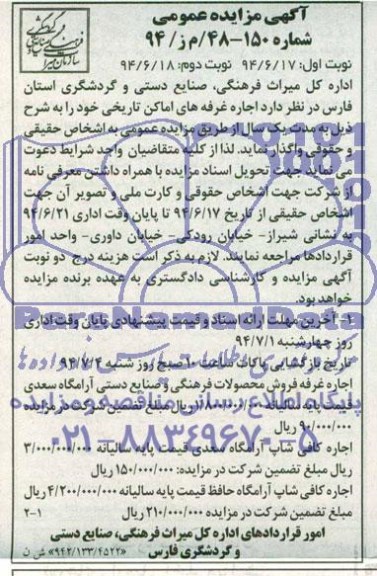 آگهی مزایده عمومی
شماره ۱۵۰-۴۸/م ز/ ۹۴
نوبت اول: ۹۴/۶/۱۷ نوبت دوم: ۹۴/۶/۱۸
اداره کل میراث فرهنگی، صنایع دستی و گردشگری استان
فارس در نظر دارد اجاره غرفه های اماکن تاریخی خود را به شرح
ذیل به مدت یک سال از طریق مزایده عمومی به اشخاص حقیقی
و حقوقی واگذار نماید. لذا از کلیه متقاضیان واجد شرایط دعوت
می نماید جهت تحویل اسناد مزایده با همراه داشتن معرفی نامه
از شرکت جهت اشخاص حقوقی و کارت ملی و تصویر آن جهت
اشخاص حقیقی از تاریخ ۹۴/۶/۱۷ تا پایان وقت اداری ۹۴/۶/۲۱
به نشانی شیراز- خیابان رودکی- خیابان داوری- واحد امور
قراردادها مراجعه نمایند. لازم به ذکر است هزینه درج دو نوبت
آگهی مزایده و کارشناسی دادگستری به عهده برنده مزایده
خواهد بود.
۱- آخرین مهلت ارائه اسناد و قیمت پیشنهادی پایان وقت اداری
روز چهارشنبه ۹۴/۷/۱
تاریخ بازگشایی پاکات ساعت ۱۰ صبح روز شنبه ۹۴/۷/۴
اجاره غرفه فروش محصولات فرهنگی و صنایع دستی آرامگاه سعدی
قیمت پایه سالیانه ریال مبلغ تضمین شرکت در مزایده
۹۰/۰۰۰/۰۰۰ ریال
اجاره کافی شاپ آرامگاه سعدی قیمت پایه سالیانه ۳/۰۰۰/۰۰۰/۰۰۰
ریال مبلغ تضمین شرکت در مزایده: ۱۵۰/۰۰۰/۰۰۰ ریال
اجاره کافی شاپ آرامگاه حافظ قیمت پایه سالیانه ۴/۲۰۰/۰۰۰/۰۰۰ ریال
مبلغ تضمین شرکت در مزایده ۲۱۰/۰۰۰/۰۰۰ ریال ۲-۱
امور قراردادهای اداره کل میراث فرهنگی، صنایع دستی
و گردشگری فارس «۹۴۲/۱۳۳/۴۵۲۲» ش ن
ParsNamadData
پایگاه اطلاع رسانی مناقصه و مزایده
۰۲۱-۸۸۳۴۹۶۷۰-۵